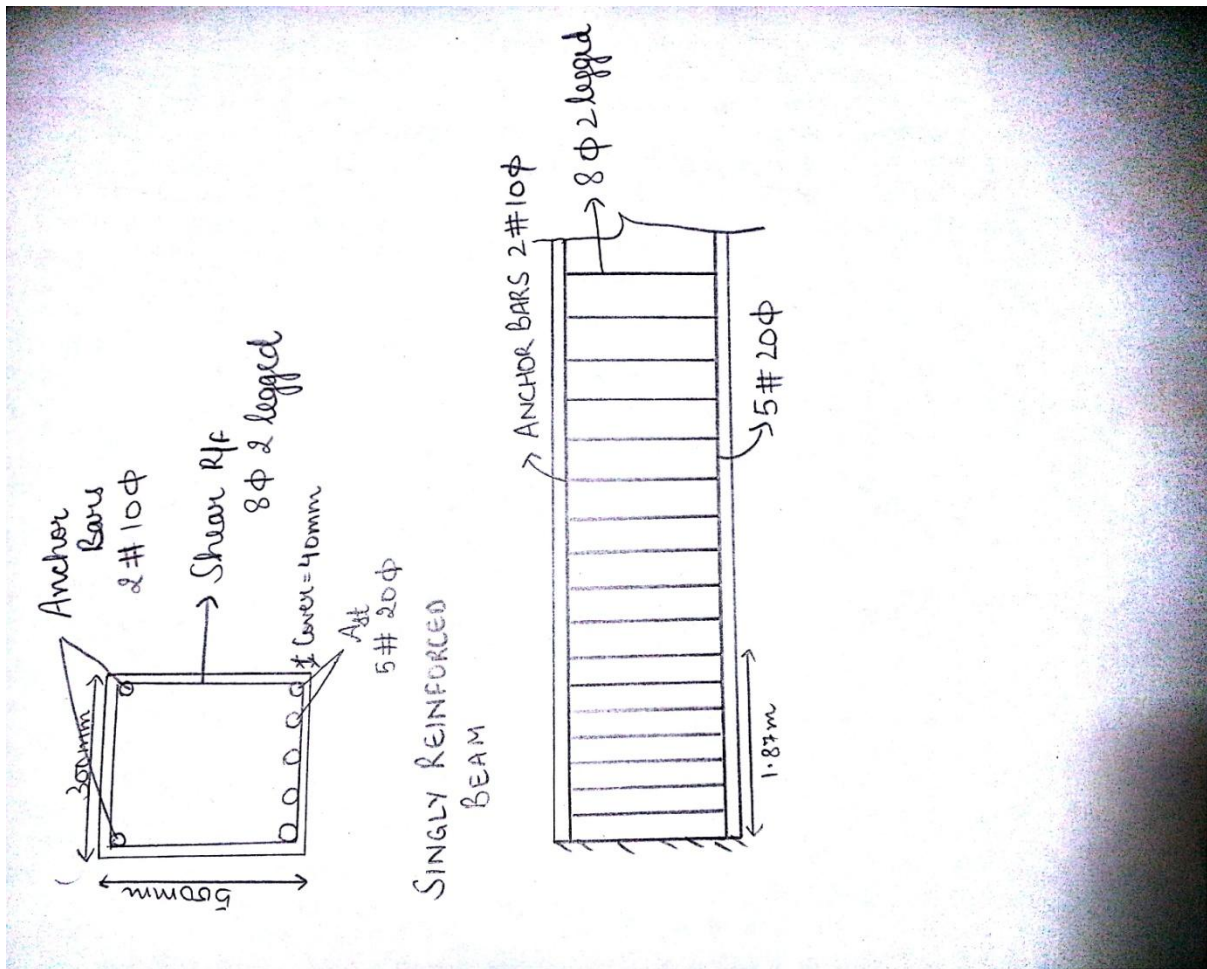 Anchor
Bars
2 # 10ϕ
300mm
500mm
Shear R/f
8ϕ 2 legged
Cover = 40mm
Ast
5# 20ϕ
SINGLY REINFORCED
BEAM
ANCHOR BARS 2#10ϕ
8ϕ 2 legged
5# 20ϕ
1.87m